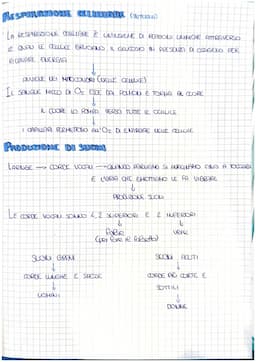 RESPIRAZIONE CELLULARE (INTERNA)
LA RESPIRAZIONE CELLULARE È UN'INSIEME DI REAZIONI CHIMICHE ATTRAVERSO
LE QUALI LE CELLULE BRUCIANO IL GLUCOSIO IN PRESENZA DI OSSIGENO PER
RICAVARE ENERGIA
AVVIENE NEI MITOCONDRI (DELLE CELLULE)
IL SANGUE RICCO DI O2 ESCE DAI POLMONI E TORNA AL CUORE
IL CUORE LO POMPA VERSO TUTTE LE CELLULE
I CAPILLARI PERMETTONO ALL'O2 DI ENTRARE NELLE CELLULE
PRODUZIONE DI SUONI
LARINGE → CORDE VOCALI → QUANDO PARLIAMO SI AVVICINANO FINO A TOCCARSI
E L'ARIA CHE EMETTIAMO LE FA VIBRARE
PRODUZIONE SUONI
LE CORDE VOCALI SONO 4, 2 SUPERIORI E 2 INFERIORI
FALSE VERE
(PER FARE IL FALSETTO)
SUONI GRAVI SUONI ACUTI
CORDE LUNGHE E SPESSE CORDE PIÙ CORTE E
SOTTILI
UOMINI
DONNE